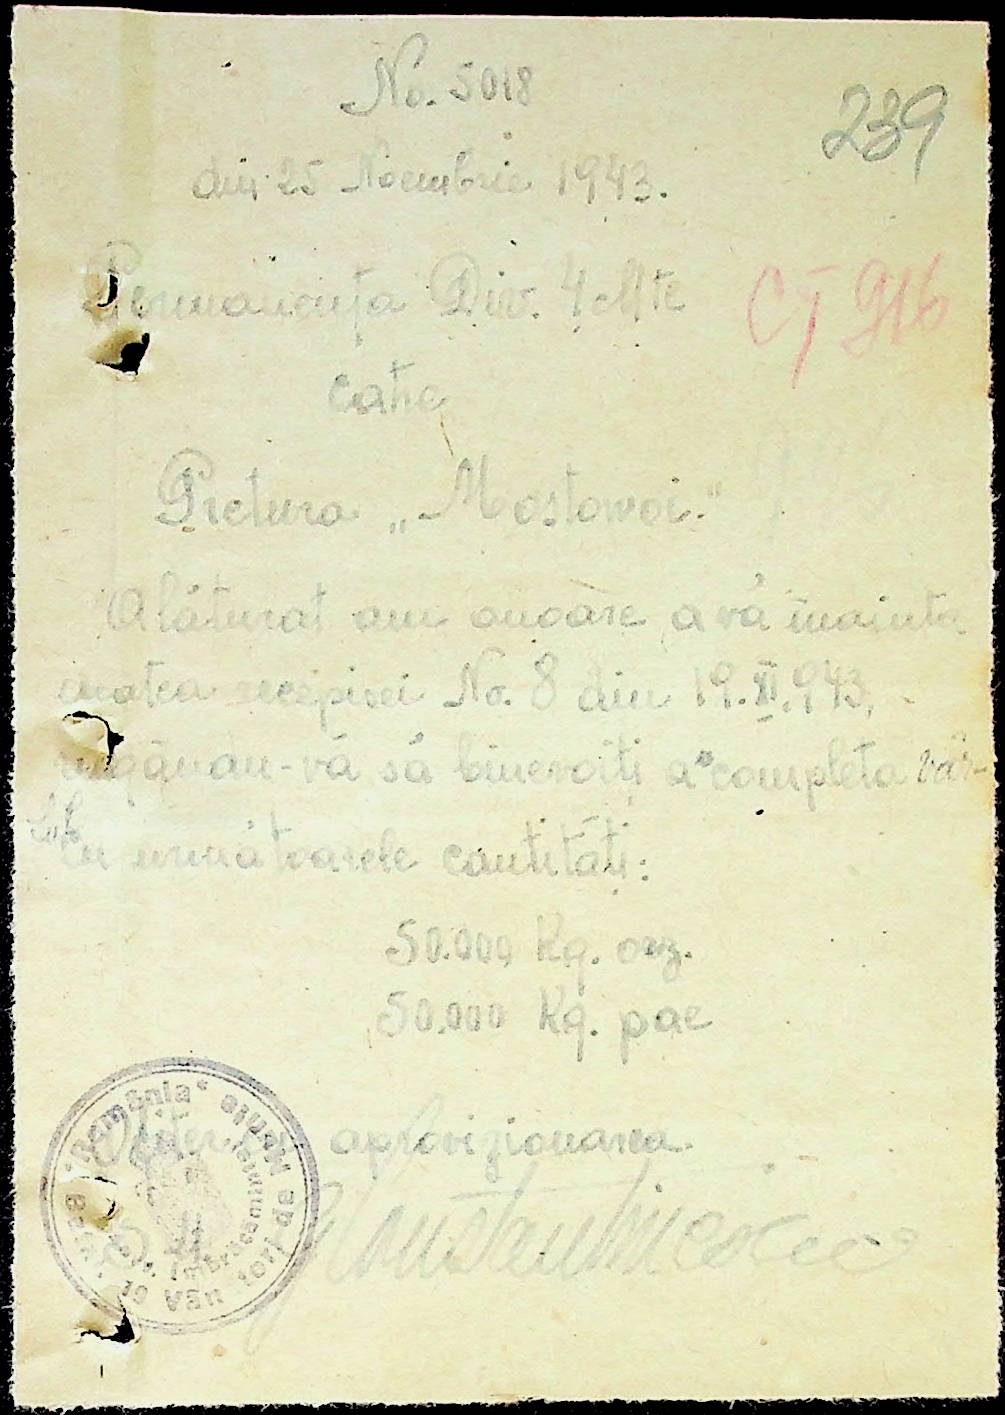 No. 5018
239
din 25 Noembrie 1943.
Permanența Div. 4 Mte
CT 916
Catre
Pretura „Mostowoi."
Alăturat am onoare a vă inainta
aratea recepisei No. 8 din 19.XI.943,
rugându-vă să binevoiți a completa
cu următoarele cantități:
50.000 Kg. orz.
50.000 Kg. pae
Ofițer cu aprovizionarea.
România
de Munte
Îmbrăcăminte